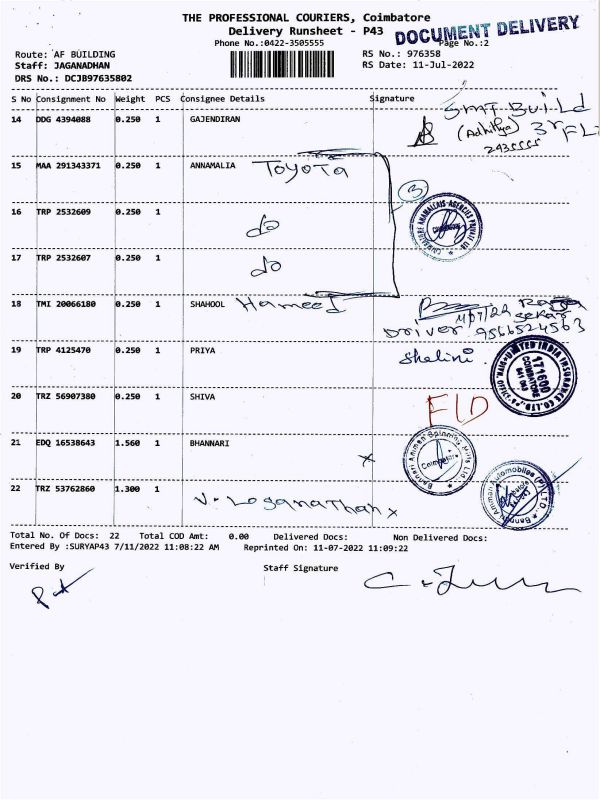 THE PROFESSIONAL COURIERS, Coimbatore
Delivery Runsheet - P43
DOCUMENT DELIVERY
Phone No.:0422-3505555 Page No.:2
Route: AF BUILDING RS No.: 976358
Staff: JAGANADHAN RS Date: 11-Jul-2022
DRS No.: DCJB97635802
S No Consignment No Weight PCS Consignee Details Signature
14 DDG 4394088 0.250 1 GAJENDIRAN
SMT Build
(Adhithya) 3rd FL
2435555
15 MAA 291343371 0.250 1 ANNAMALIA TOYOTA
3
16 TRP 2532609 0.250 1 do
17 TRP 2532607 0.250 1 do
18 TMI 20066180 0.250 1 SHAHOOL Hameed
11/7/22 Raja Sekar
Driver 9566524563
19 TRP 4125470 0.250 1 PRIYA Shalini.
UNITED INDIA INSURANCE CO. LTD.
171600
COIMBATORE
641 043
20 TRZ 56907380 0.250 1 SHIVA
21 EDQ 16538643 1.560 1 BHANNARI
Bannari Amman Spinning Mills Ltd.
Coimbatore
22 TRZ 53762860 1.300 1 V. Loganathan x
Bannari Amman Automobiles (P) LTD.
Total No. Of Docs: 22 Total COD Amt: 0.00 Delivered Docs: Non Delivered Docs:
Entered By :SURYAP43 7/11/2022 11:08:22 AM Reprinted On: 11-07-2022 11:09:22
Verified By Staff Signature